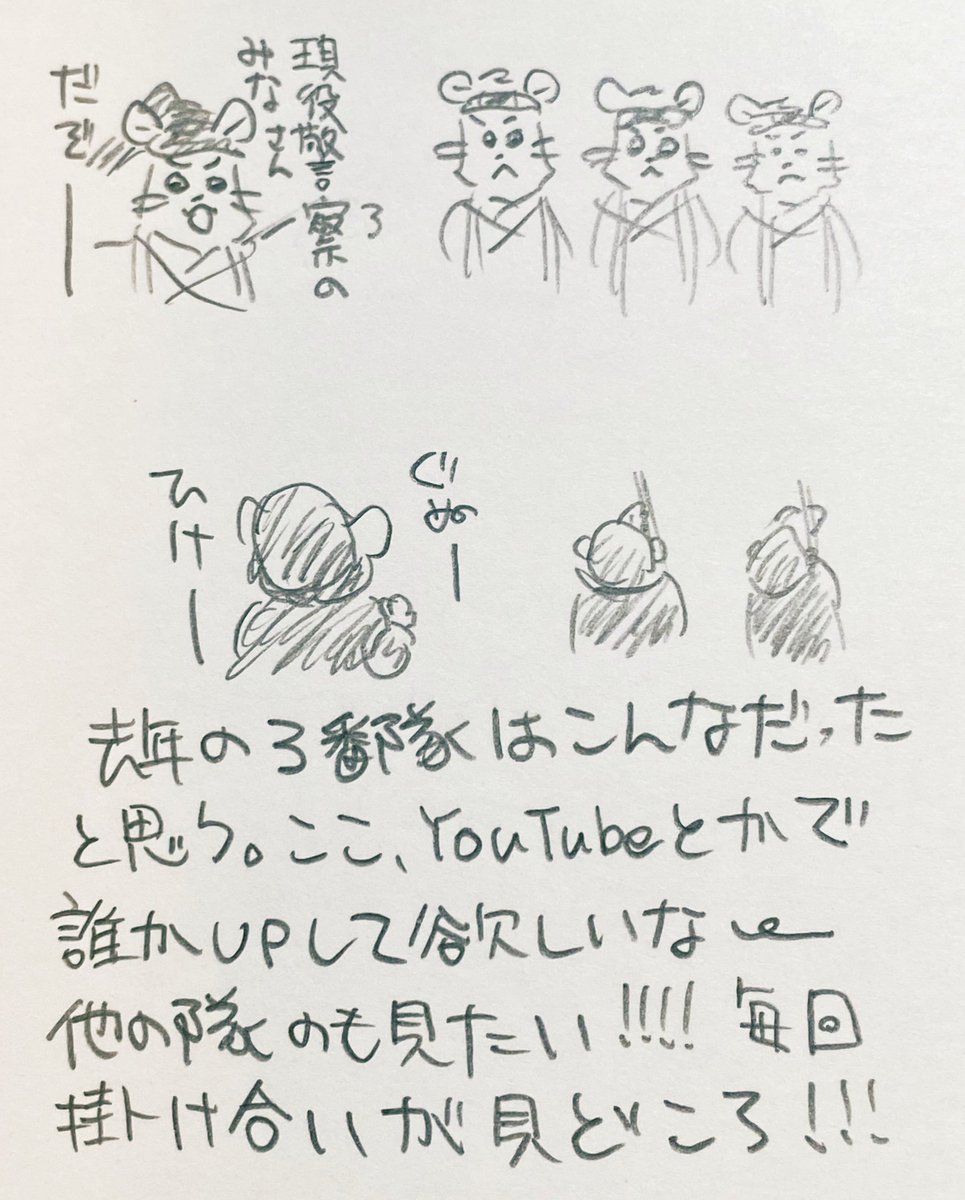 現役警察の
みなさん
だぞー
ぐぬー
ひけー
去年の3番隊はこんなだった
と思う。ここ、YouTubeとかで
誰かUPして欲しいなー
他の隊のも見たい!!!!毎回
掛け合いが見どころ!!!